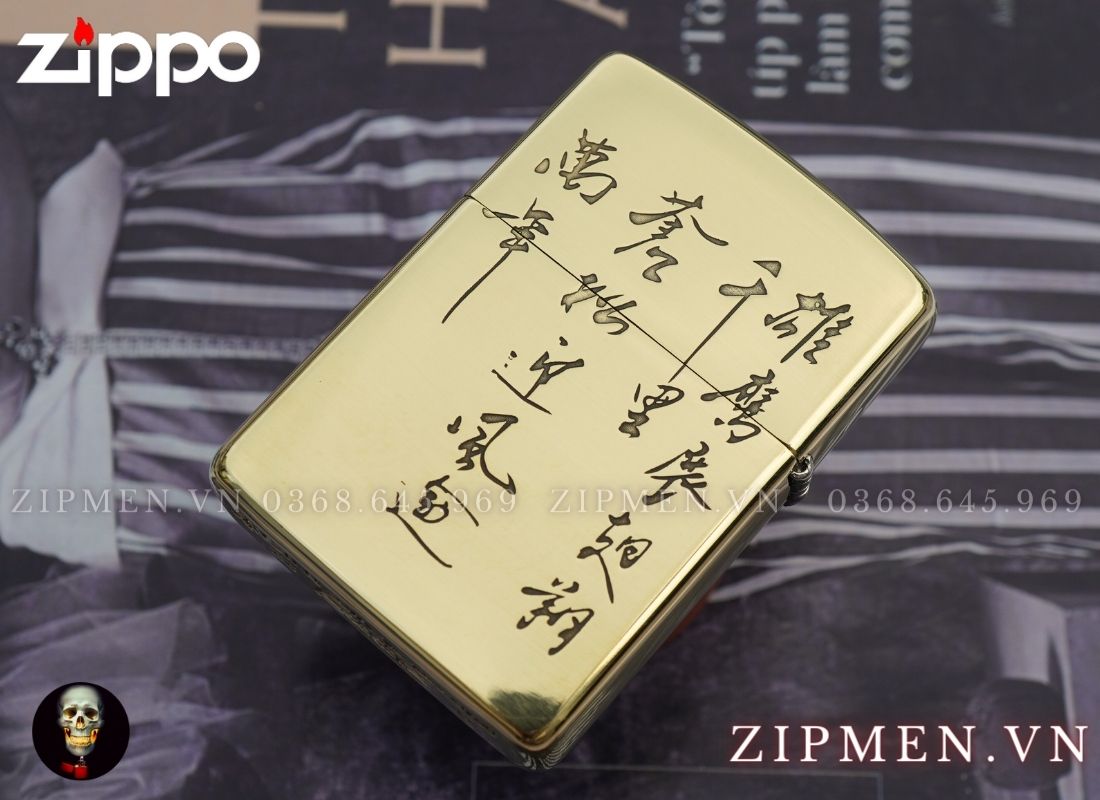 zippo
雄鷹展翅翱
千里
蒼松迎風逾
萬年
"Tớ
úp p
làm
com
ZIPMEN.VN 0368.645.969 ZIPMEN.VN 0368.645.969
ZIPMEN.VN